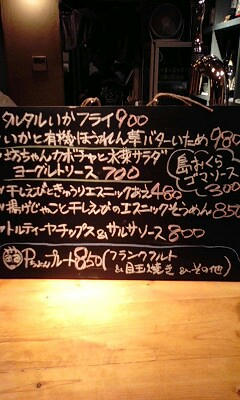 タルタルいかフライ900
いかと有機ほうれん草バターいため980
坊ちゃんカボチャと水菜サラダ
ヨーグルトソース 700
島おくら
ゴマソース
300
干しえびときゅうりエスニックあえ480
揚げじゃこと干しえびのエスニックそうめん850
トルティーヤチップス&サルサソース800
Pちょいプレート850(フランクフルト
&目玉焼き&その他)